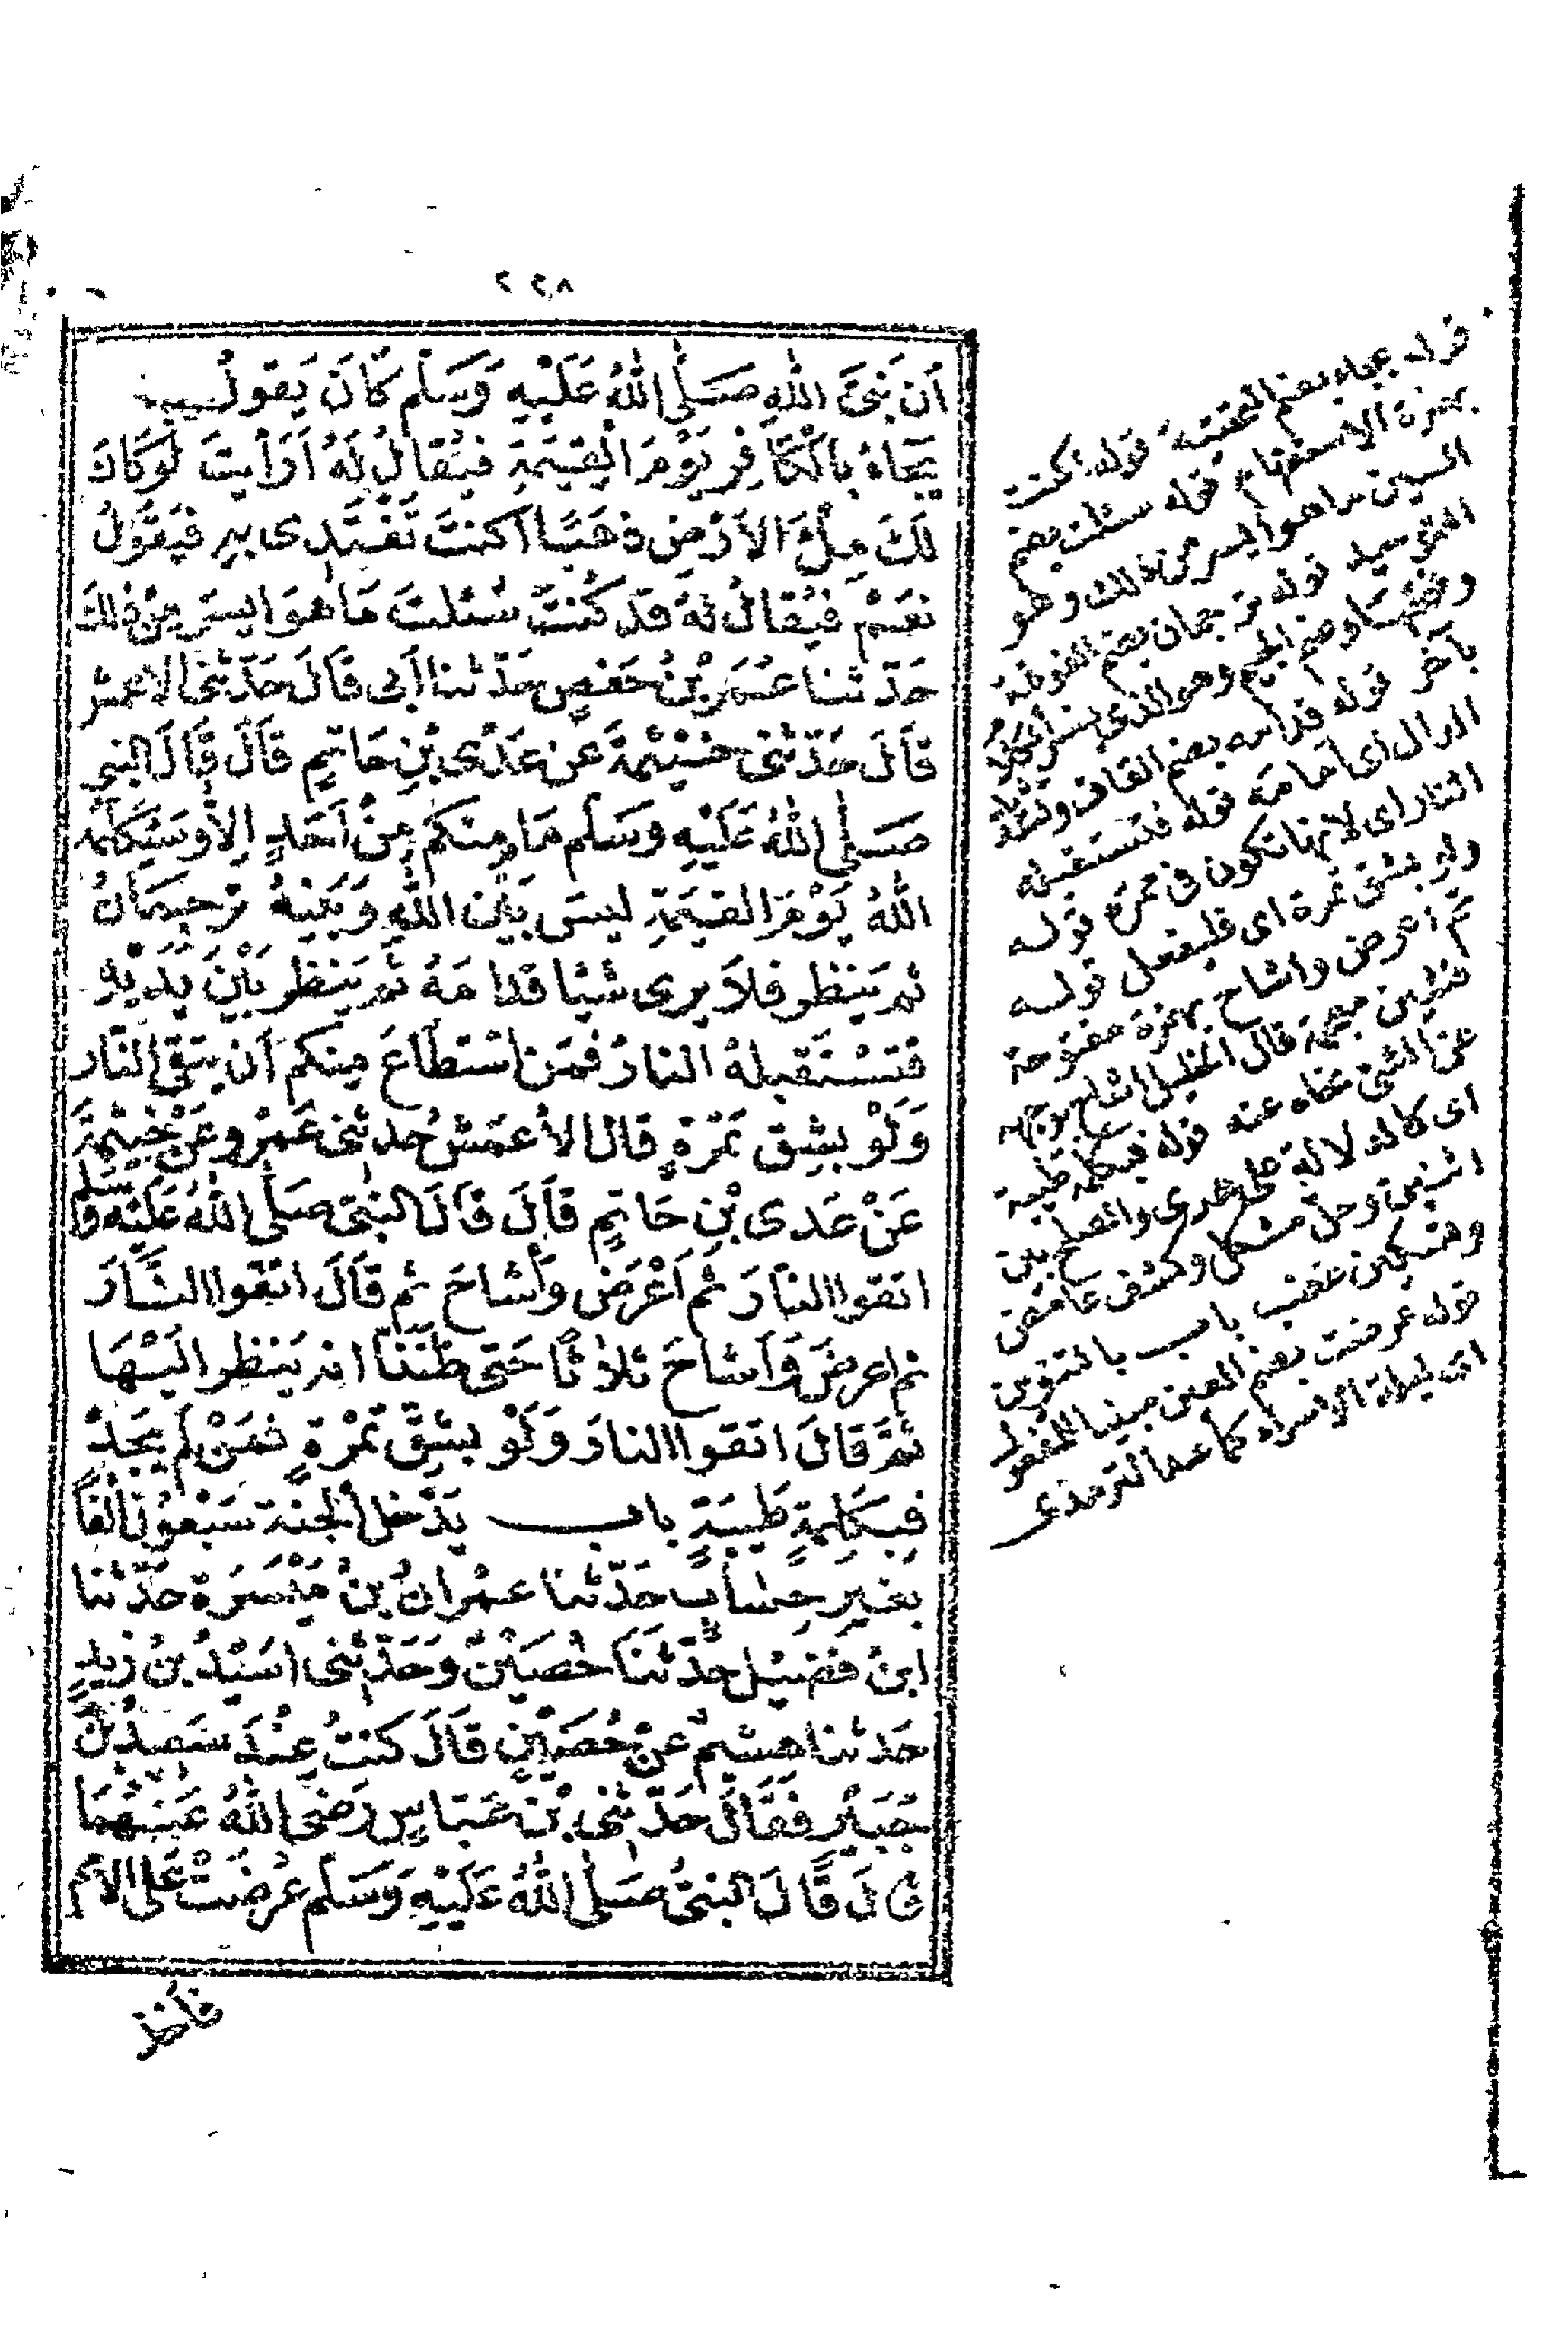 ٢٢٨
أن نبيَّ الله صَلَّى اللهُ عَلَيْهِ وَسَلّم كَانَ يَقولُ
يُجاءُ بالْكَافِر يَوْمَ القِيٰمَةِ فَيُقالُ لَهُ أرَأيتَ لَوْ كانَ
لكَ مِلْءُ الأرْضِ ذهَبًا أكنتَ تَفْتَدِى بهِ فيَقُولُ
نعَمْ فيُقالُ لهُ قدْ كُنْتَ سُئلتَ مَا هوَ ايسَرُ مِنْ ذٰلكَ
حَدّثنا عُمَرُ بْنُ حَفصٍ حَدّثنا أبى قَالَ حَدّثَنى الأعمش
قَالَ حَدّثنى خَيْثمةُ عن عَدِىّ بْنِ حَاتِمٍ قَالَ قَالَ النبى
صَلى اللهُ عَلَيْهِ وسَلّم مَا مِنكم مِنْ أحَدٍ إلاّ وسَيُكلمه
اللهُ يَوْمَ القيمَةِ ليسَ بَيْن اللهِ وَبَيْنهُ تُرجمَانٌ
ثم يَنظر فلا يرى شيْأ قدّامَهُ ثم يَنظر بَيْنَ يدَيْهِ
فتسْتَقبلهُ النارُ فمَن استطاعَ مِنكم أن يتقى النار
وَلَوْ بِشِق تمْرةٍ قال الأعمَش حدثنى عَمْرو عَنْ خَيْثمةَ
عَنْ عَدى بْنِ حَاتمٍ قَالَ قَالَ النبىّ صَلى اللهُ عَلَيْه وسَلم
اتقوا النارَ ثم أعْرَضَ وأشاحَ ثم قَالَ اتقوا النَّارَ
ثم اعرضَ وَأشاحَ ثلاثًا حَتى ظنَنا انه يَنظر اليْهَا
ثمَّ قالَ اتقوا النارَ وَلَوْ بشِقّ تمْرةٍ فمَنْ لم يَجدْ
فبكَلِمةٍ طَيبَةٍ باب يَدْخل الجنة سَبْعون ألفًا
بغيرِ حِسابٍ حَدّثنا عمران بنُ مَيْسَرَة حَدّثنا
ابنُ فضيْل حَدّثنَا حُصَيْنٌ وحَدّثنى اسَيْدُ بنُ زيدٍ
حَدثنا هشيْم عنْ حُصَيْنٍ قَالَ كنتُ عِنْدَ سَعيدِ بْن
جُبَيْرٍ فقالَ حَدّثنى بْن عَبّاسٍ رَضى اللهُ عَنهُمَا
قالَ قَالَ النبىُّ صَلى اللهُ عَلَيْهِ وَسَلم عُرضَتْ عَلىّ الأمم
فأخذ
قوله يجاء بضم التحتية قوله اكنت
بهمزة الاستفهام قوله سئلت بضم
السين ما هو ايسر من ذلك وهو
التوحيد قوله ترجمان بضم الفوقية
وفتحها وضم الجيم وهو الذى يفسر
بآخر قوله قدامه بضم القاف وتشديد
الدال اى امامه قوله فتستقبله
النار اى لانها تكون فى ممره قوله
ولو بشق تمرة اى فليفعل قوله
ثم اعرض واشاح بهمزة مفتوحة
فشين معجمة قال الخليل اشاح بوجهه
عن الشئ نحاه عنه قوله فبكلمة طيبة
اى كالدلالة على هدى والصلح بين
اثنين وحل مشكل وكشف غامض
وتسكين غضب باب بالتنوين
قوله عرضت بضم العين مبنيا للمفعول
اى ليلة الاسراء كما عند الترمذى